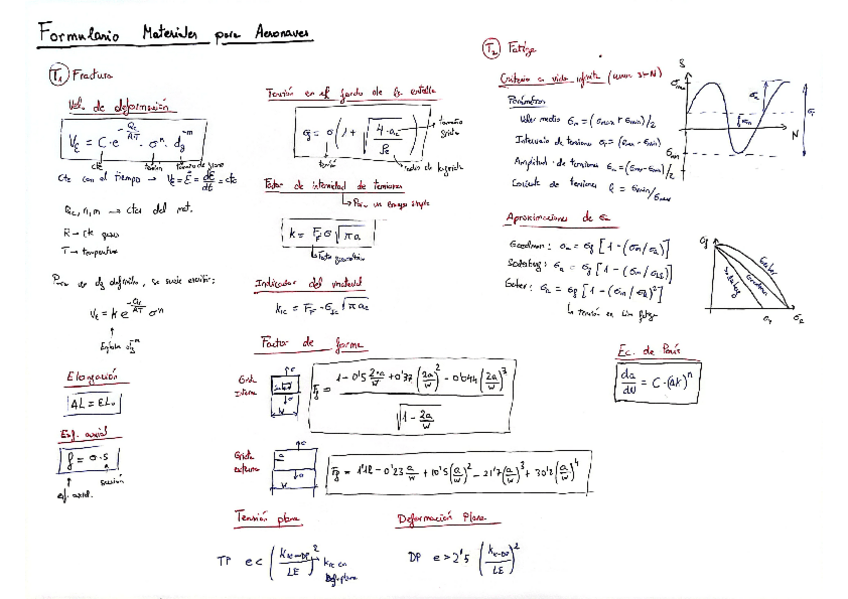 Formulario Materiales para Aeronaves
T1 Fractura
Vel. de deformación
V_ε = C·e^(-Qc/RT) · σ^n · d_g^-m
cte tensión tamaño de grano
Cte con el tiempo → V_ε = ε̇ = dε/dt = cte
Qc, n, m → ctes del mat.
R → cte gases
T → temperatura
Para un dg definitivo, se suele escribir:
V_ε = k e^(-Qc/RT) σ^n
Elongación
ΔL = εL₀
Esf. axial
f = σ·S
sección
Tensión en el fondo de la entalla
σ = σ(1 + √(4·a_c/ρ_e))
tamaño grieta
tensión
radio de la grieta
Factor de intensidad de tensiones
→ Para un ensayo simple
k = F_F σ √(πa)
Factor geométrico
Indicador del material
k_IC = F_F · σ_c √(πa_c)
Factor de forma
Grieta interna
σ
w
F_g = (1 - 0'5 2a/w + 0'37 (2a/w)² - 0'044 (2a/w)³) / √(1 - 2a/w)
Grieta externa
a
σ
w
F_g = 1'12 - 0'23 a/w + 10'5 (a/w)² - 21'7 (a/w)³ + 30'2 (a/w)⁴
Tensión plana
TP e < (k_IC-DP / LE)²
k_IC en Def. plana
Deformación Plana
DP e > 2'5 (k_IC-DP / LE)²
T2 Fatiga
Criterio a vida infinita (curva S-N)
Parámetros
Valor medio σm = (σmax + σmin)/2
Intervalo de tensiones σr = (σmax - σmin)
Amplitud de tensiones σa = (σmax - σmin)/2
Cociente de tensiones R = σmin/σmax
S
σmax
σa
σr
σm
N
σmin
Aproximaciones de σa
Goodman: σa = σf [1 - (σm/σR)]
Soderberg: σa = σf [1 - (σm/σLE)]
Gerber: σa = σf [1 - (σm/σR)²]
↳ tensión en lim fatiga
σf
Gerber
Goodman
Soderberg
σR
Ec. de Paris
da/dN = C·(Δk)^n